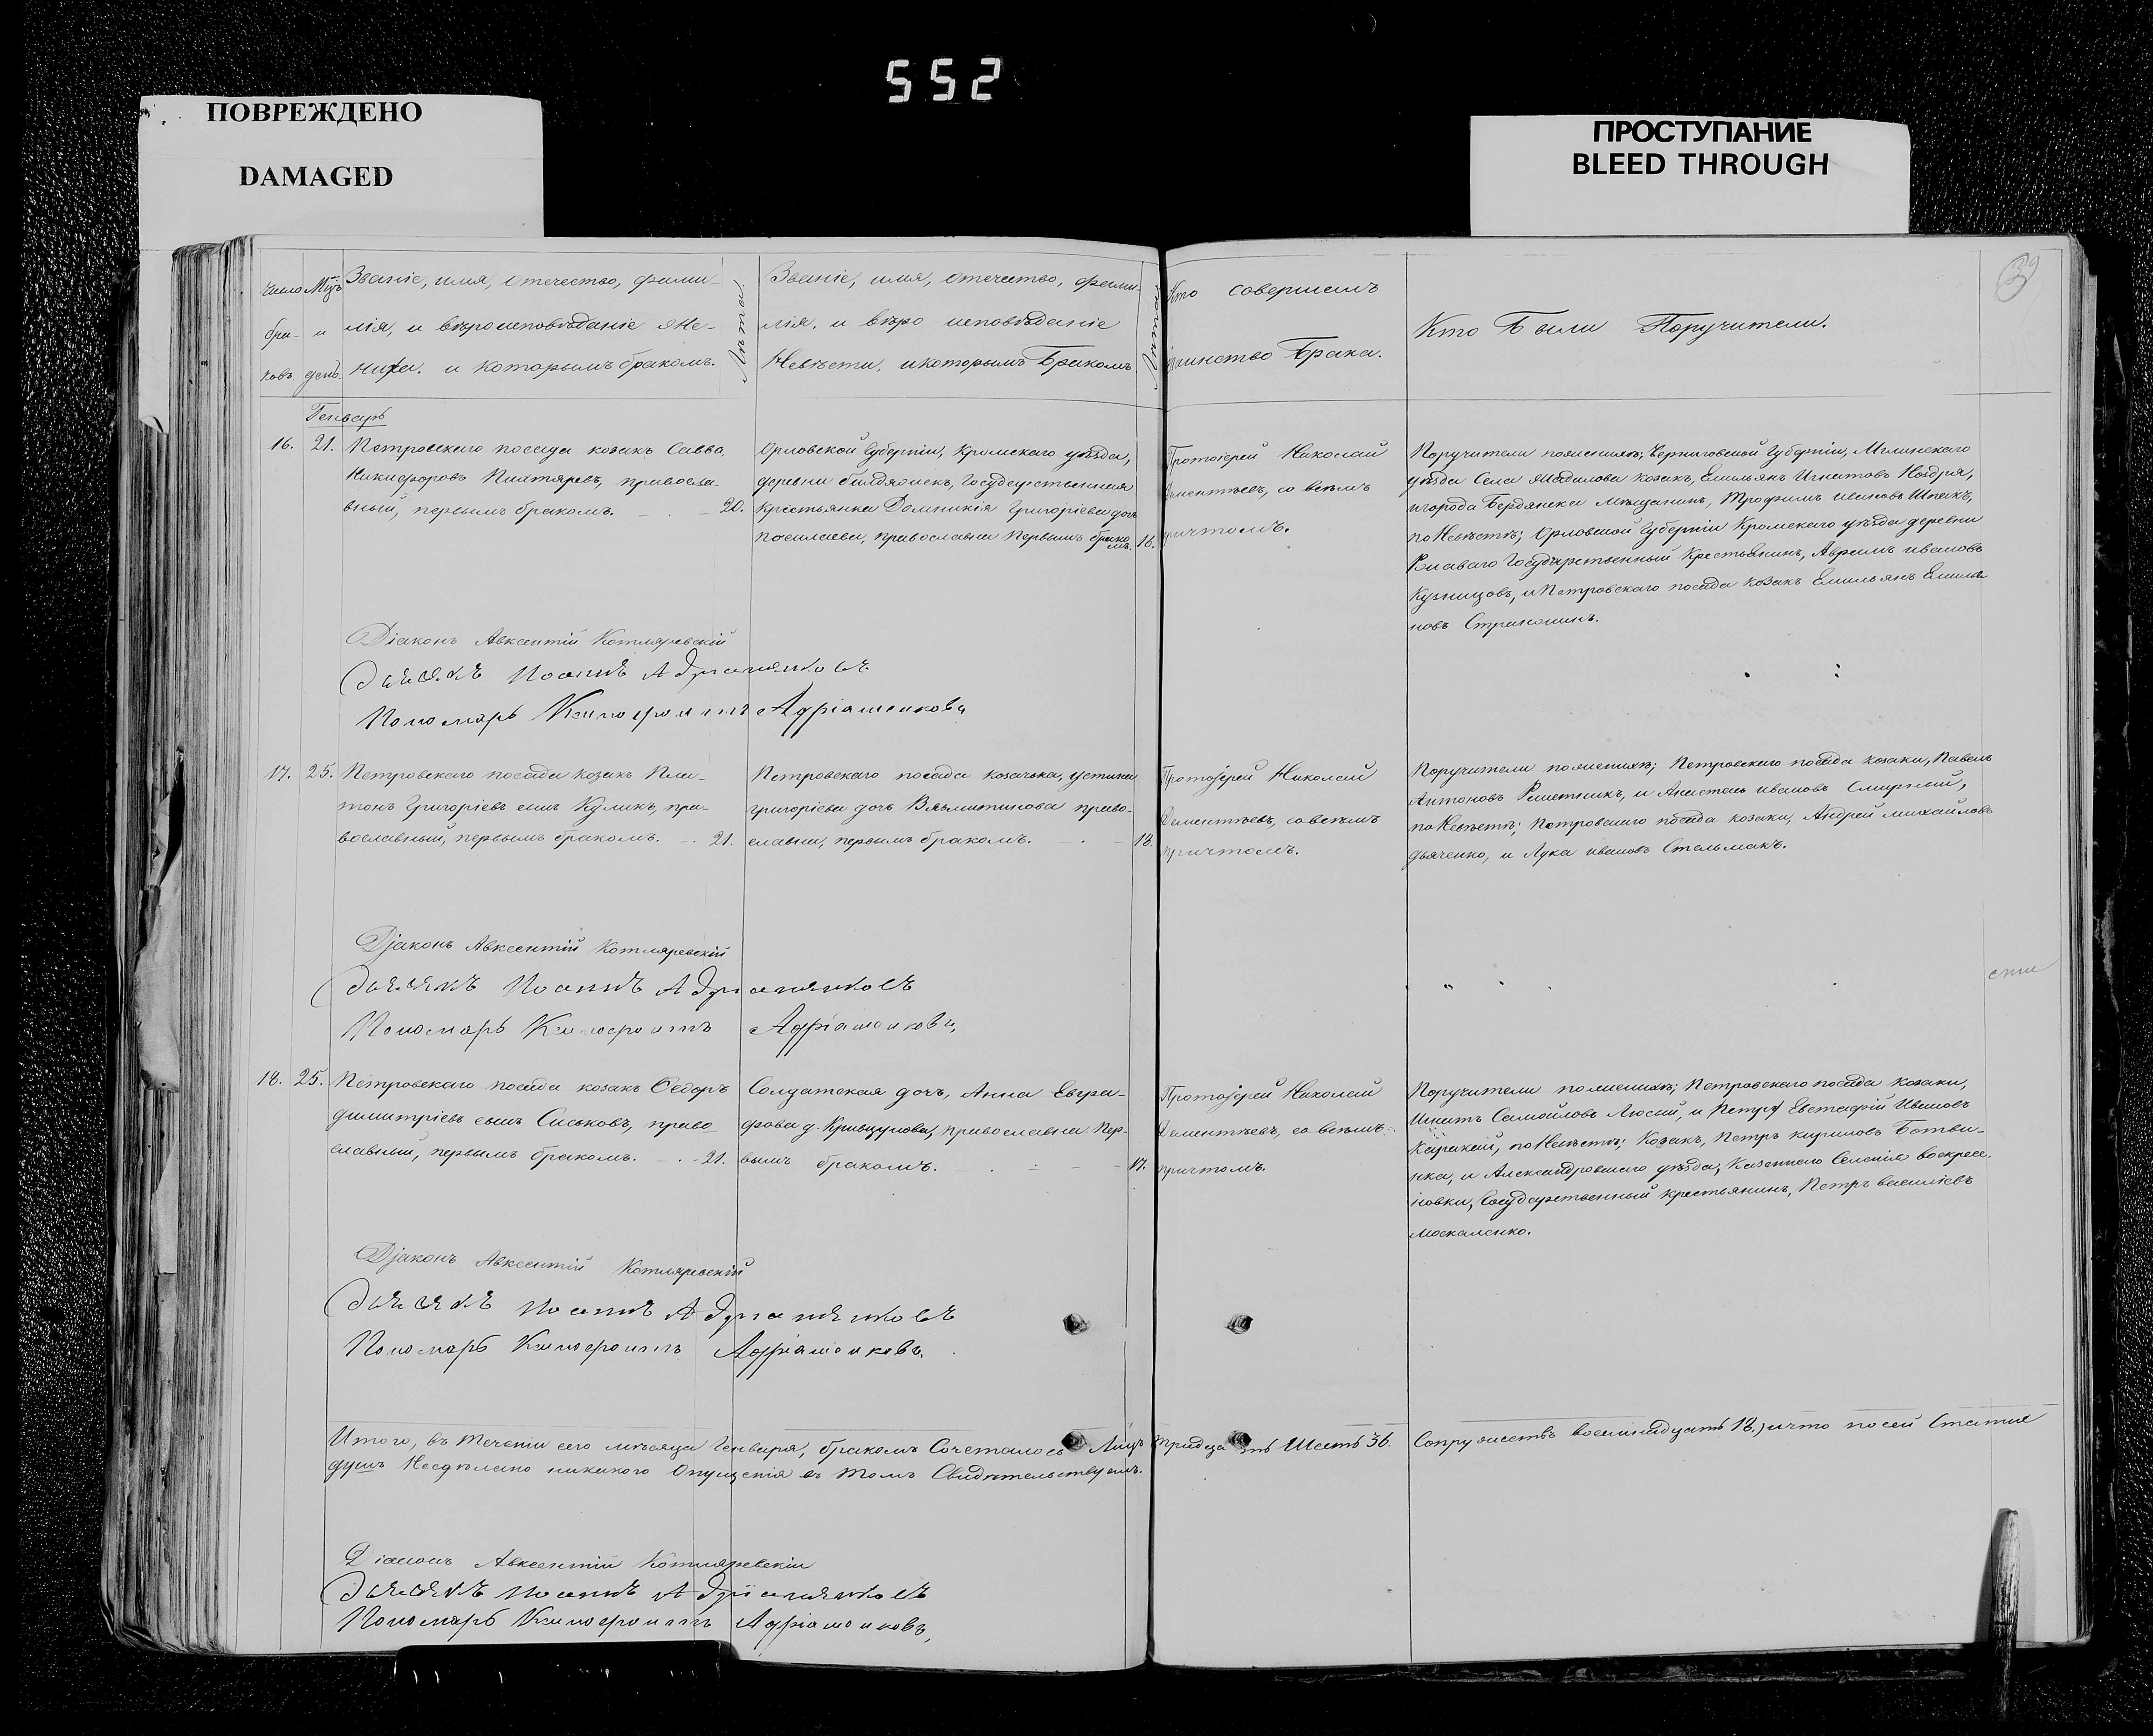 552
ПОВРЕЖДЕНО
DAMAGED
ПРОСТУПАНИЕ
BLEED THROUGH
39
Число Мцъ Званіе, имя, отечество, фами-
бра- и лія, и вѣроисповѣданіе же-
ковъ. день. ниха. и которымъ бракомъ.
Лѣта.
Званіе, имя, отечество, фами-
лія, и вѣро исповѣданіе
Невѣсты, и которымъ Бракомъ
Лѣта.
Кто совершалъ
таинство Брака.
Кто Были Поручители.
Генварь
16. 21. Петровскаго посада козакъ Савва,
Никифоровъ Пихтяревъ, правосла-
вный, первымъ бракомъ. 20.
Орловской Губерніи, Кромскаго уѣзда,
деревни Государственная
крестьянка Домникія Григоріева дочь
православна первымъ бракомъ. 16.
Протоіерей Николай
Дементьевъ, со всѣмъ
причтомъ.
Поручители по женихѣ; Черниговской Губерніи, Мглинскаго
уѣзда Села козакъ, Емельянъ Игнатовъ Ноздря,
и города Бердянска мѣщанинъ, Трофимъ Ивановъ Шпакъ,
по Невѣстѣ; Орловской Губерніи Кромскаго уѣзда деревни
Ржаваго Государственный Крестьянинъ, Абрамъ Ивановъ
Кузнецовъ, и Петровскаго посада козакъ Емельянъ Емелья
новъ
Діаконъ Авксентій Котляревскій
Дьячекъ Іоаннъ Адріаненковъ
Пономарь Ксенофонтъ Адріаненковъ
17. 25. Петровскаго посада козакъ Пла-
тонъ Григоріевъ сынъ Куликъ, пра-
вославный, первымъ бракомъ. 21.
Петровскаго посада козачка, Устина
Григоріева дочь право-
славна, первымъ бракомъ. 18.
Протоіерей Николай
Дементьевъ, со всѣмъ
причтомъ.
Поручители по женихѣ; Петровскаго посада козаки, Павелъ
Антоновъ Решетникъ, и Ивановъ Смирный,
по Невѣстѣ; Петровскаго посада козаки, Андрей Михайловъ
Дьяченко, и Лука Ивановъ Стельмахъ.
Діаконъ Авксентій Котляревскій
Дьячекъ Іоаннъ Адріаненковъ
Пономарь Ксенофонтъ Адріаненковъ
18. 25. Петровскаго посада козакъ Ѳедоръ
Димитріевъ сынъ Сиськовъ, право
славный, первымъ бракомъ. 21.
Солдатская дочь, Анна Евгра-
фова д. Кривцунова, православна пер-
вымъ бракомъ. 17.
Протоіерей Николай
Дементьевъ, со всѣмъ
причтомъ.
Поручители по женихѣ; Петровскаго посада козаки,
Самойловъ и Евстафій Ивановъ
по Невѣстѣ; Козакъ, Петръ Кириловъ Ботви-
нка, и Александровскаго уѣзда, Казеннаго Селенія Воскресе-
новки, Государственный крестьянинъ, Петръ Василіевъ
Москаленко.
Діаконъ Авксентій Котляревскій
Дьячекъ Іоаннъ Адріаненковъ
Пономарь Ксенофонтъ Адріаненковъ.
Итого, въ теченіи сего мѣсяца Генваря, бракомъ Сочеталось Лицъ тридцать шесть 36. Супружествъ восемнадцать 18.) и что по сей Статіе
душъ Несдѣлано никакого Опущенія въ томъ Свидѣтельствуемъ.
Діаконъ Авксентій Котляревскій
Дьячекъ Іоаннъ Адріаненковъ
Пономарь Ксенофонтъ Адріаненковъ